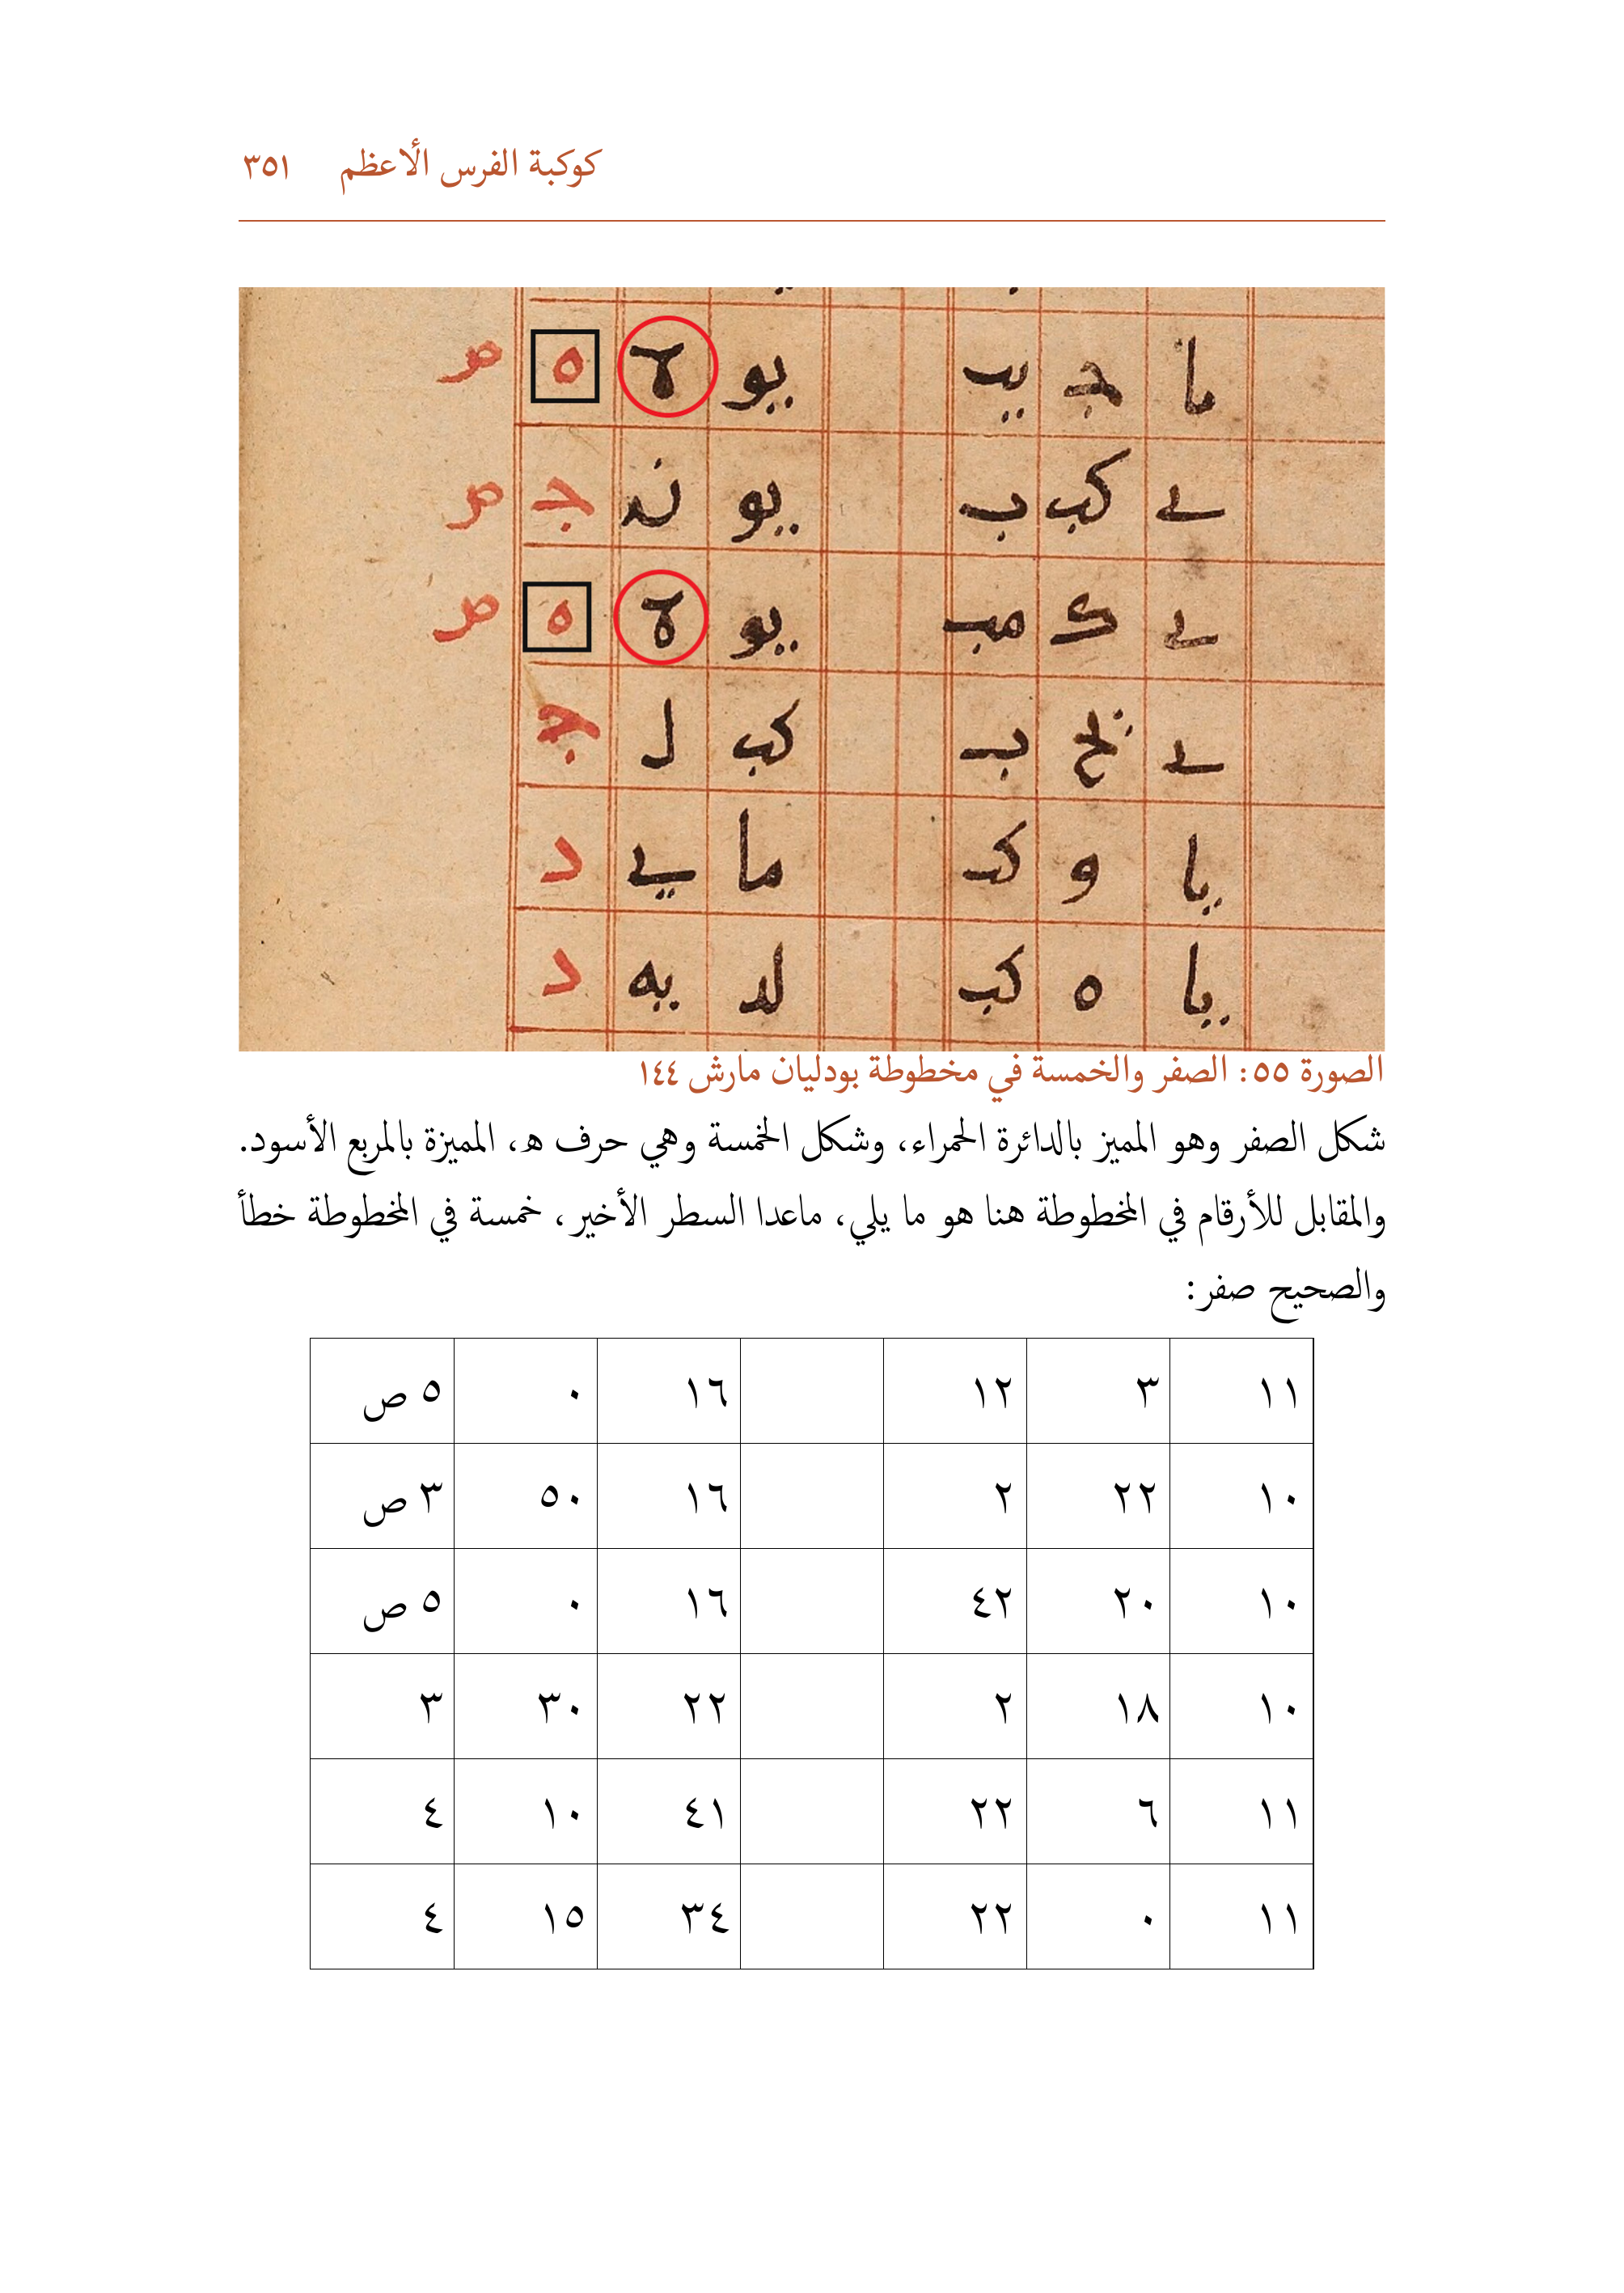 كوكبة الفرس الأعظم ٣٥١
ما جـ يب يو ة ه ص
ے كب ب يو ند جـ ص
ے ك مب يو ة ه ص
ے يح ب كب ل جـ
يا و كد ما يے د
يا ه كب لد يه د
الصورة ٥٥: الصفر والخمسة في مخطوطة بودليان مارش ١٤٤
شكل الصفر وهو المميز بالدائرة الحمراء، وشكل الخمسة وهي حرف ه، المميزة بالمربع الأسود.
والمقابل للأرقام في المخطوطة هنا هو ما يلي، ماعدا السطر الأخير، خمسة في المخطوطة خطأ
والصحيح صفر:
١١ ٣ ١٢ ١٦ ٠ ٥ ص
١٠ ٢٢ ٢ ١٦ ٥٠ ٣ ص
١٠ ٢٠ ٤٢ ١٦ ٠ ٥ ص
١٠ ١٨ ٢ ٢٢ ٣٠ ٣
١١ ٦ ٢٢ ٤١ ١٠ ٤
١١ ٠ ٢٢ ٣٤ ١٥ ٤